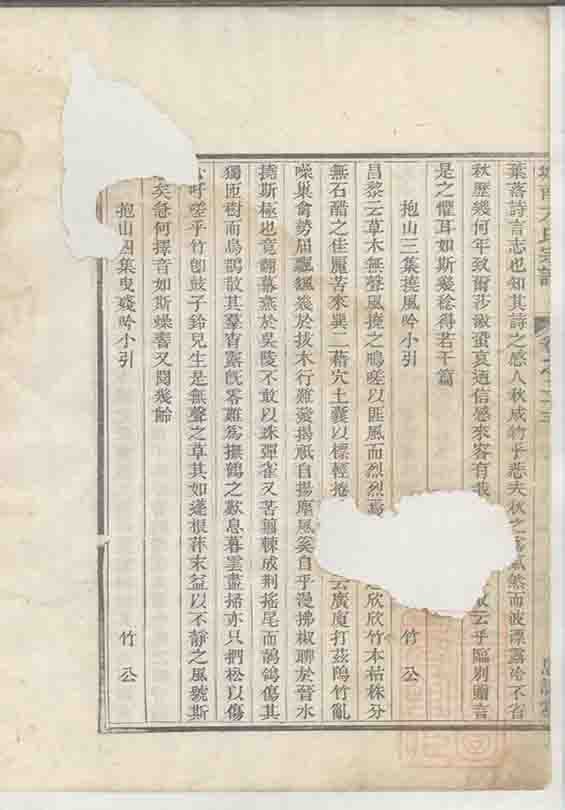 葉落詩言志也知其詩之感人秋咸竹乎悲夫秋之為氣然而波漂露冷不省
秋歷幾何年致爾莎澈蛩哀適信感來客有我云乎臨別贈言
是之懼耳如斯殘稔得若干篇
抱山三集撓風吟小引 竹公
昌黎云草木無聲風撓之鳴嗟以匪風而烈烈欣欣竹本枯株分
無石醋之佳麗苦來巽二藉穴土囊以標輕捲云廣廈打茲鳲竹亂
噪巢禽勢屈飄颻幾於拔木行難發揚祇自揚塵風奚自乎漫拂椒聊於晉水
撓斯極也竟翻落燕於吳陵不敢以珠彈雀又苦翦棘成荆搖尾而鶺鴒傷其
獨匝樹而烏鵲散其羣宵露旣零難爲撫鶴之歎息暮雲盡掃亦只捫松以傷
呼嗟乎竹卽鼓子鈴兒生是無聲之草其如蓬根萍末益以不靜之風號斯
矣急何擇音如斯燥響又閱幾齡
抱山四集曳殘吟小引 竹公